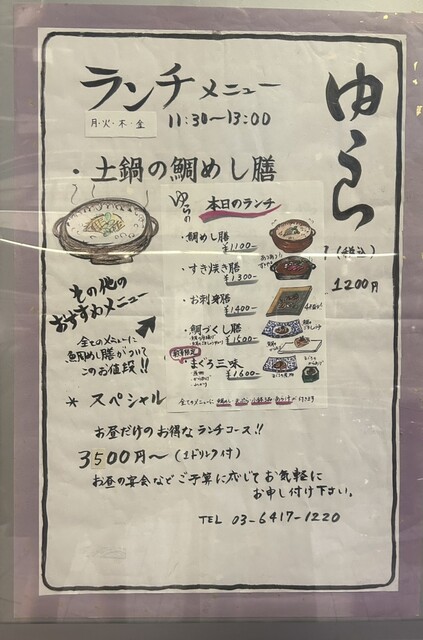 ランチメニュー
月・火・木・金
11:30〜13:00
ゆらら
・土鍋の鯛めし膳
(税込)
1200円
ゆらの
本日のランチ
・鯛めし膳
¥1100-
・すき焼き膳
¥1300-
・お刺身膳
¥1400-
・鯛づくし膳
¥1500-
数量限定
・まぐろ三昧
¥1600-
その他の
おすすめメニュー
全てのメニューに
鯛めし膳がついて
このお値段!!
* スペシャル
お昼だけのお得なランチコース!!
3500円〜(1ドリンク付)
お昼の宴会などご予算に応じてお気軽に
お申し付け下さい。
TEL 03-6417-1220